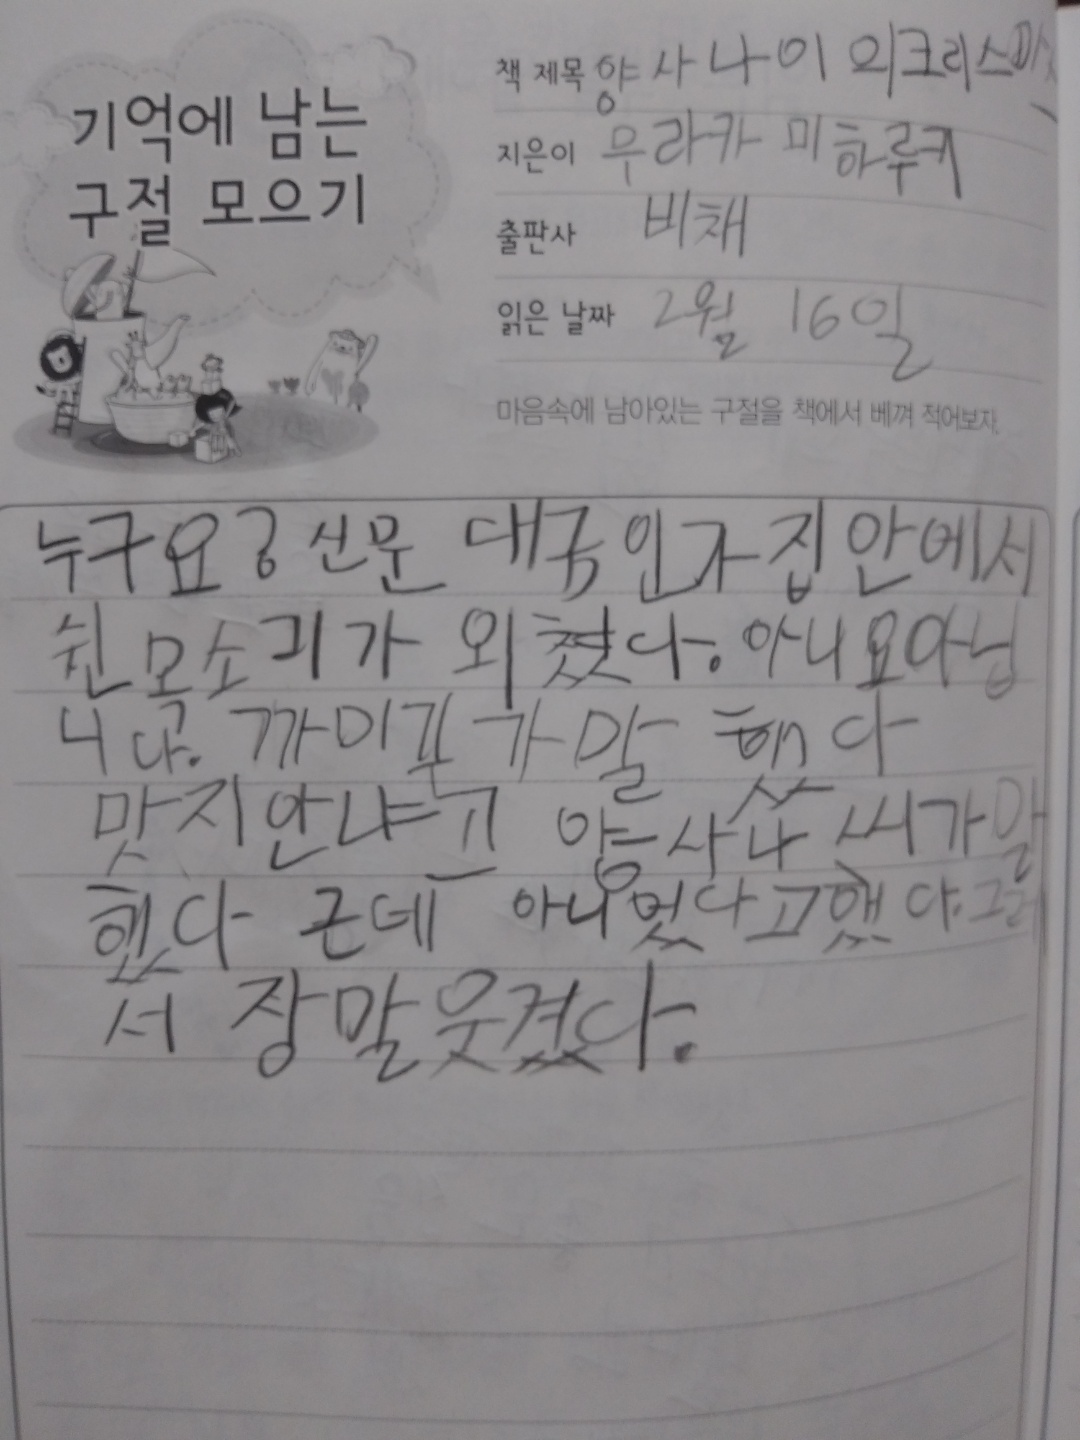 기억에 남는
구절 모으기
책 제목 양사나이 외크리스마스
지은이 무라카 미하루키
출판사 비채
읽은 날짜 2월 16일
마음속에 남아있는 구절을 책에서 베껴 적어보자.
누구요? 신문 대국인가 집 안에서
쉰 모소리가 외쳤다. 아니요아닙
니다. 까미귀가말 했다
맛지안냐고 양사나 씨가말
했다 근데 아니엇다고했다. 그래
서 장말웃겼다.